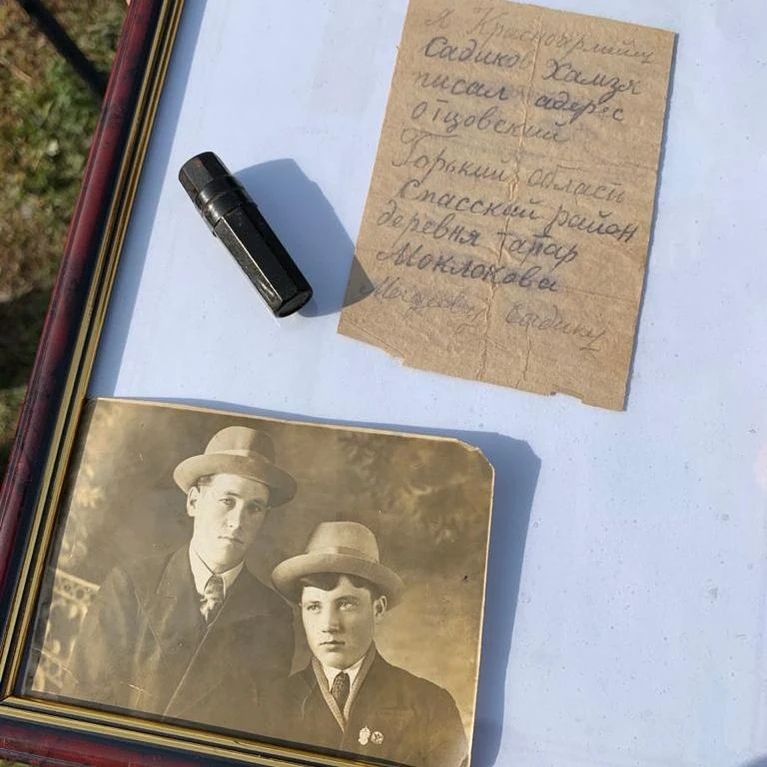 я Красноармейц
Садиков Хамзя
писал адрес
отцовский
Горький область
Спасский район
деревня татар
Моклокова
Садику